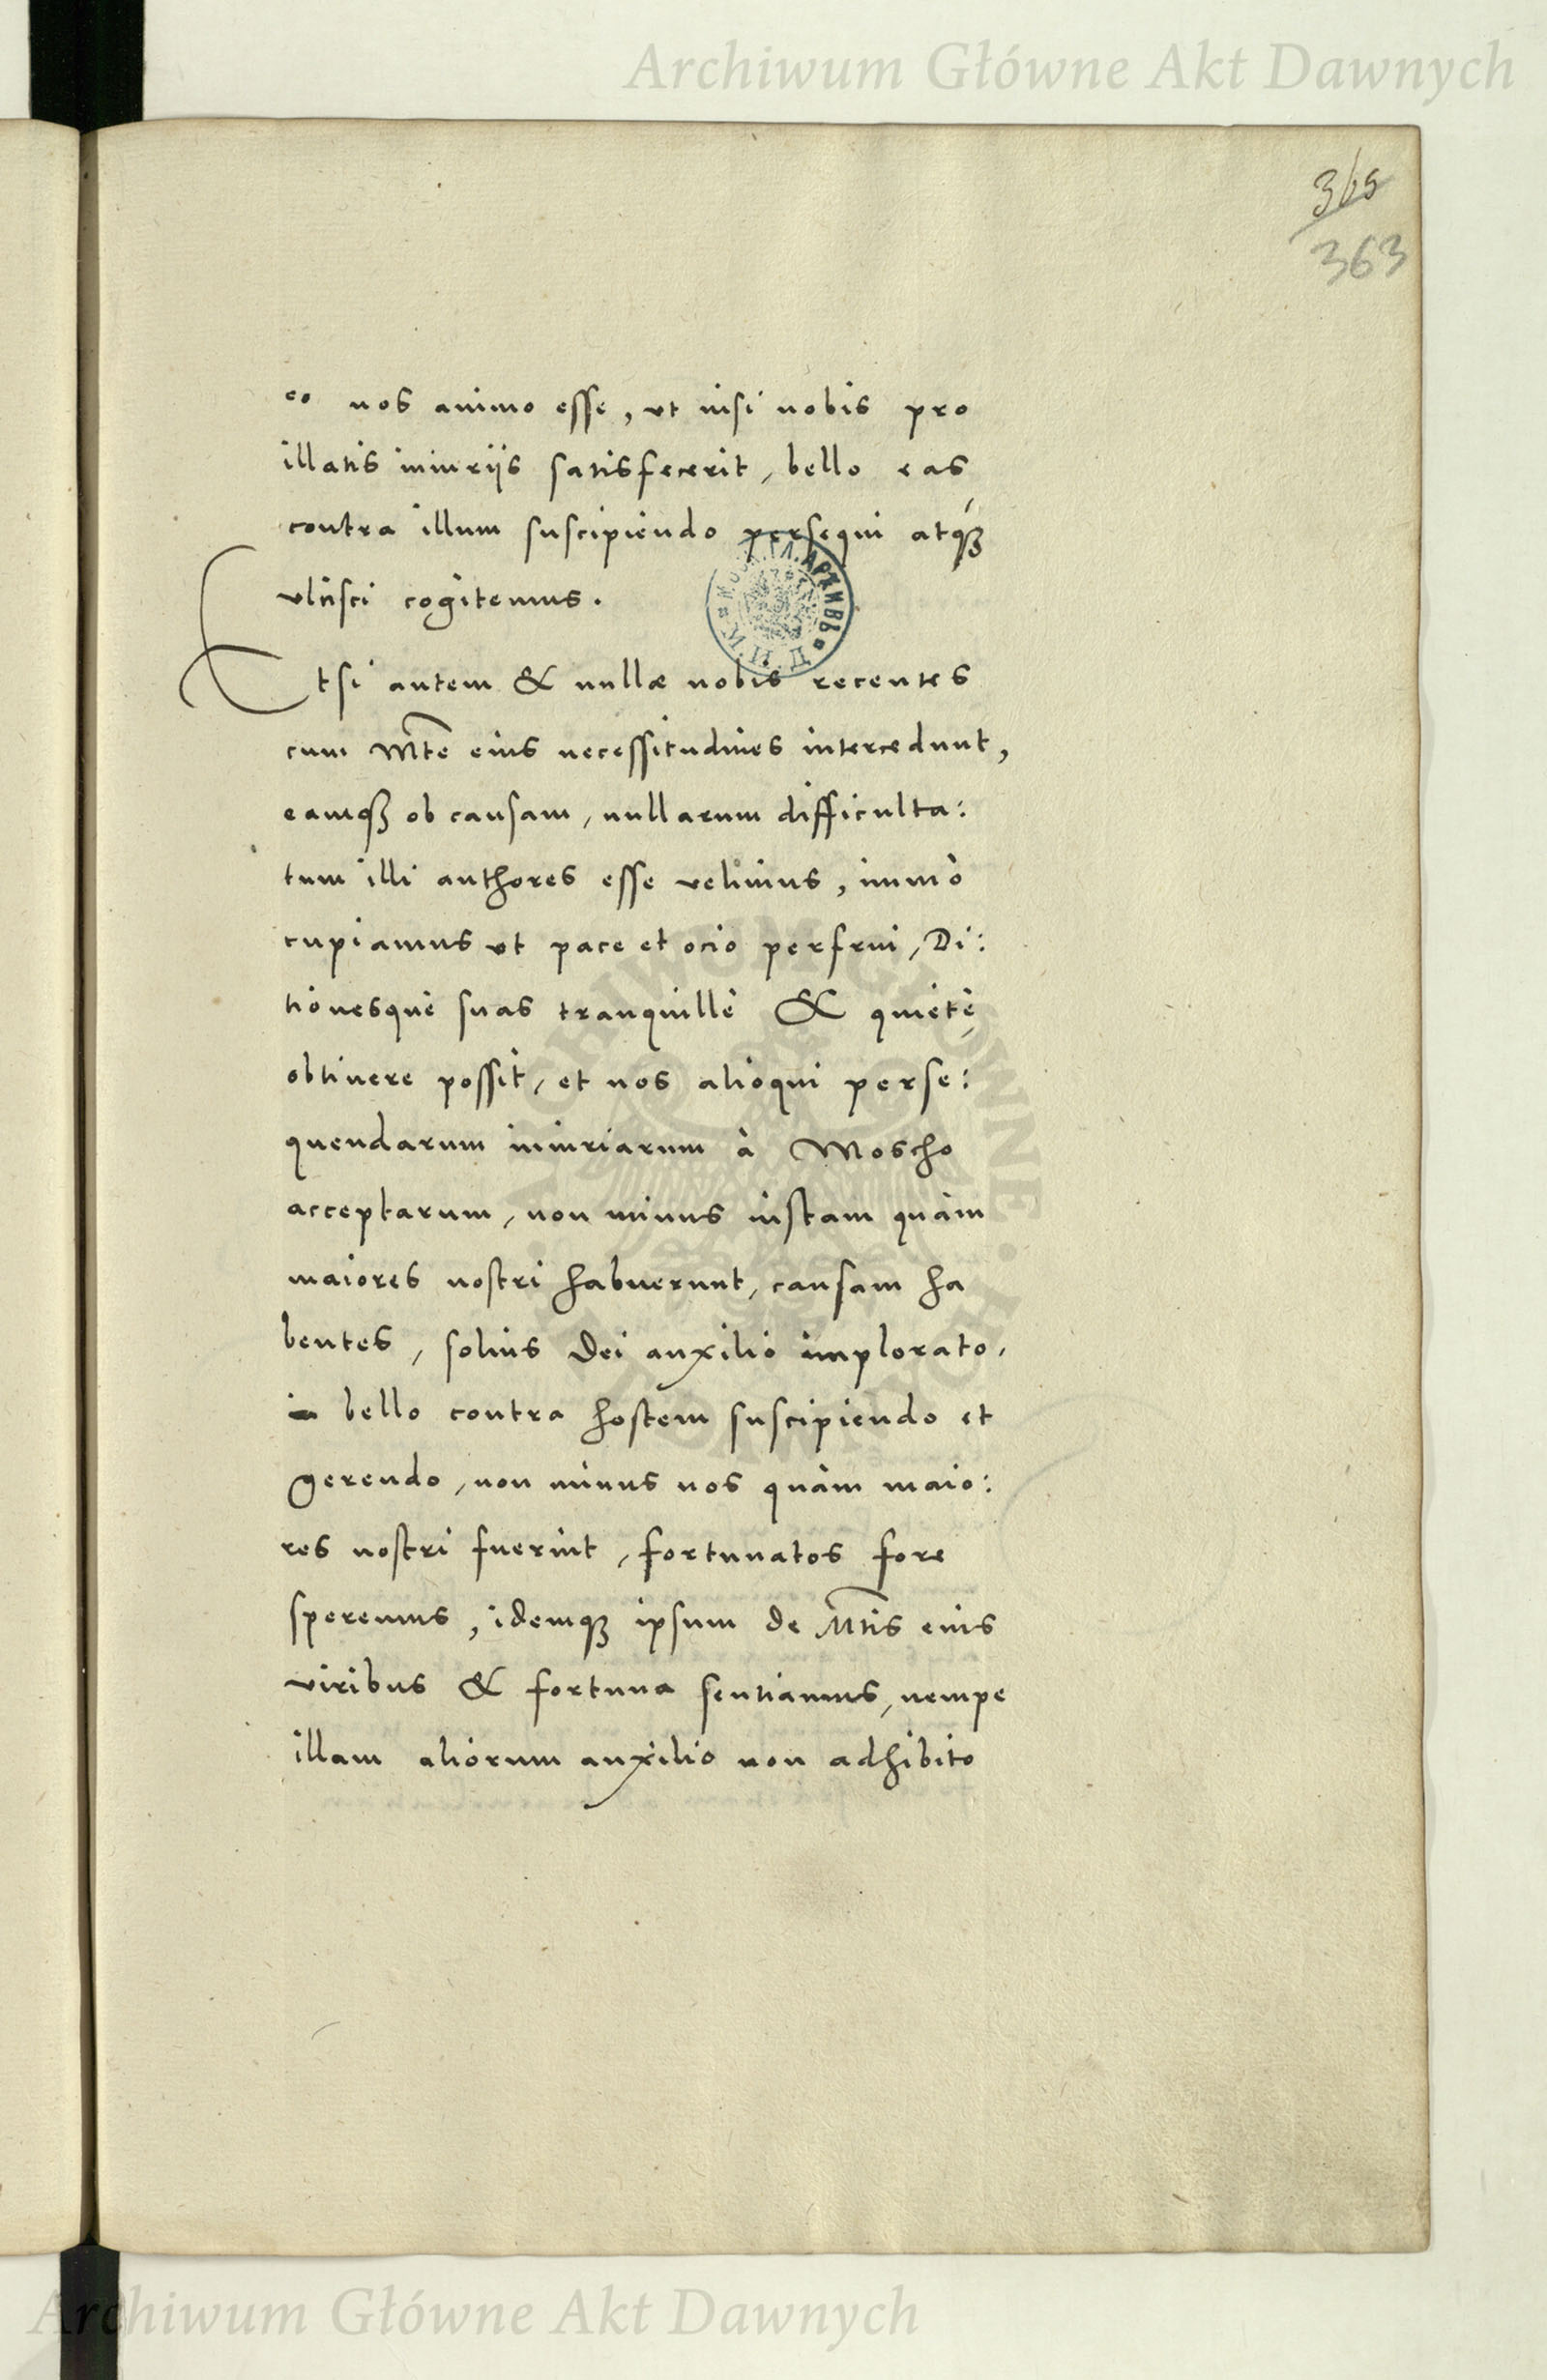 Archiwum Główne Akt Dawnych
365
363
eo nos animo esse, ut nisi nobis pro
illatis iniuriis satisfecerit, bello eas
contra illum suscipiendo persequi atq́ꝫ
ulcisci cogitemus.
Etsi autem & nullæ nobis recentes
cum Mte eius necessitudines intercedunt,
eamqꝫ ob causam, nullarum difficulta:
tum illi authores esse velimus, immò
cupiamus ut pace et ocio perfrui, Di:
tionesquè suas tranquillè & quietè
obtinere possit, et nos alioqui perse:
quendarum iniuriarum à Moscho
acceptarum, non minus iustam quàm
maiores nostri habuerunt, causam ha
bentes, solius Dei auxilio implorato,
in bello contra hostem suscipiendo et
gerendo, non minus nos quàm maio:
res nostri fuerint, fortunatos fore
speremus, idemqꝫ ipsum de Mtis eius
viribus & fortuna sentiamus, nempe
illam aliorum auxilio non adhibito
Archiwum Główne Akt Dawnych